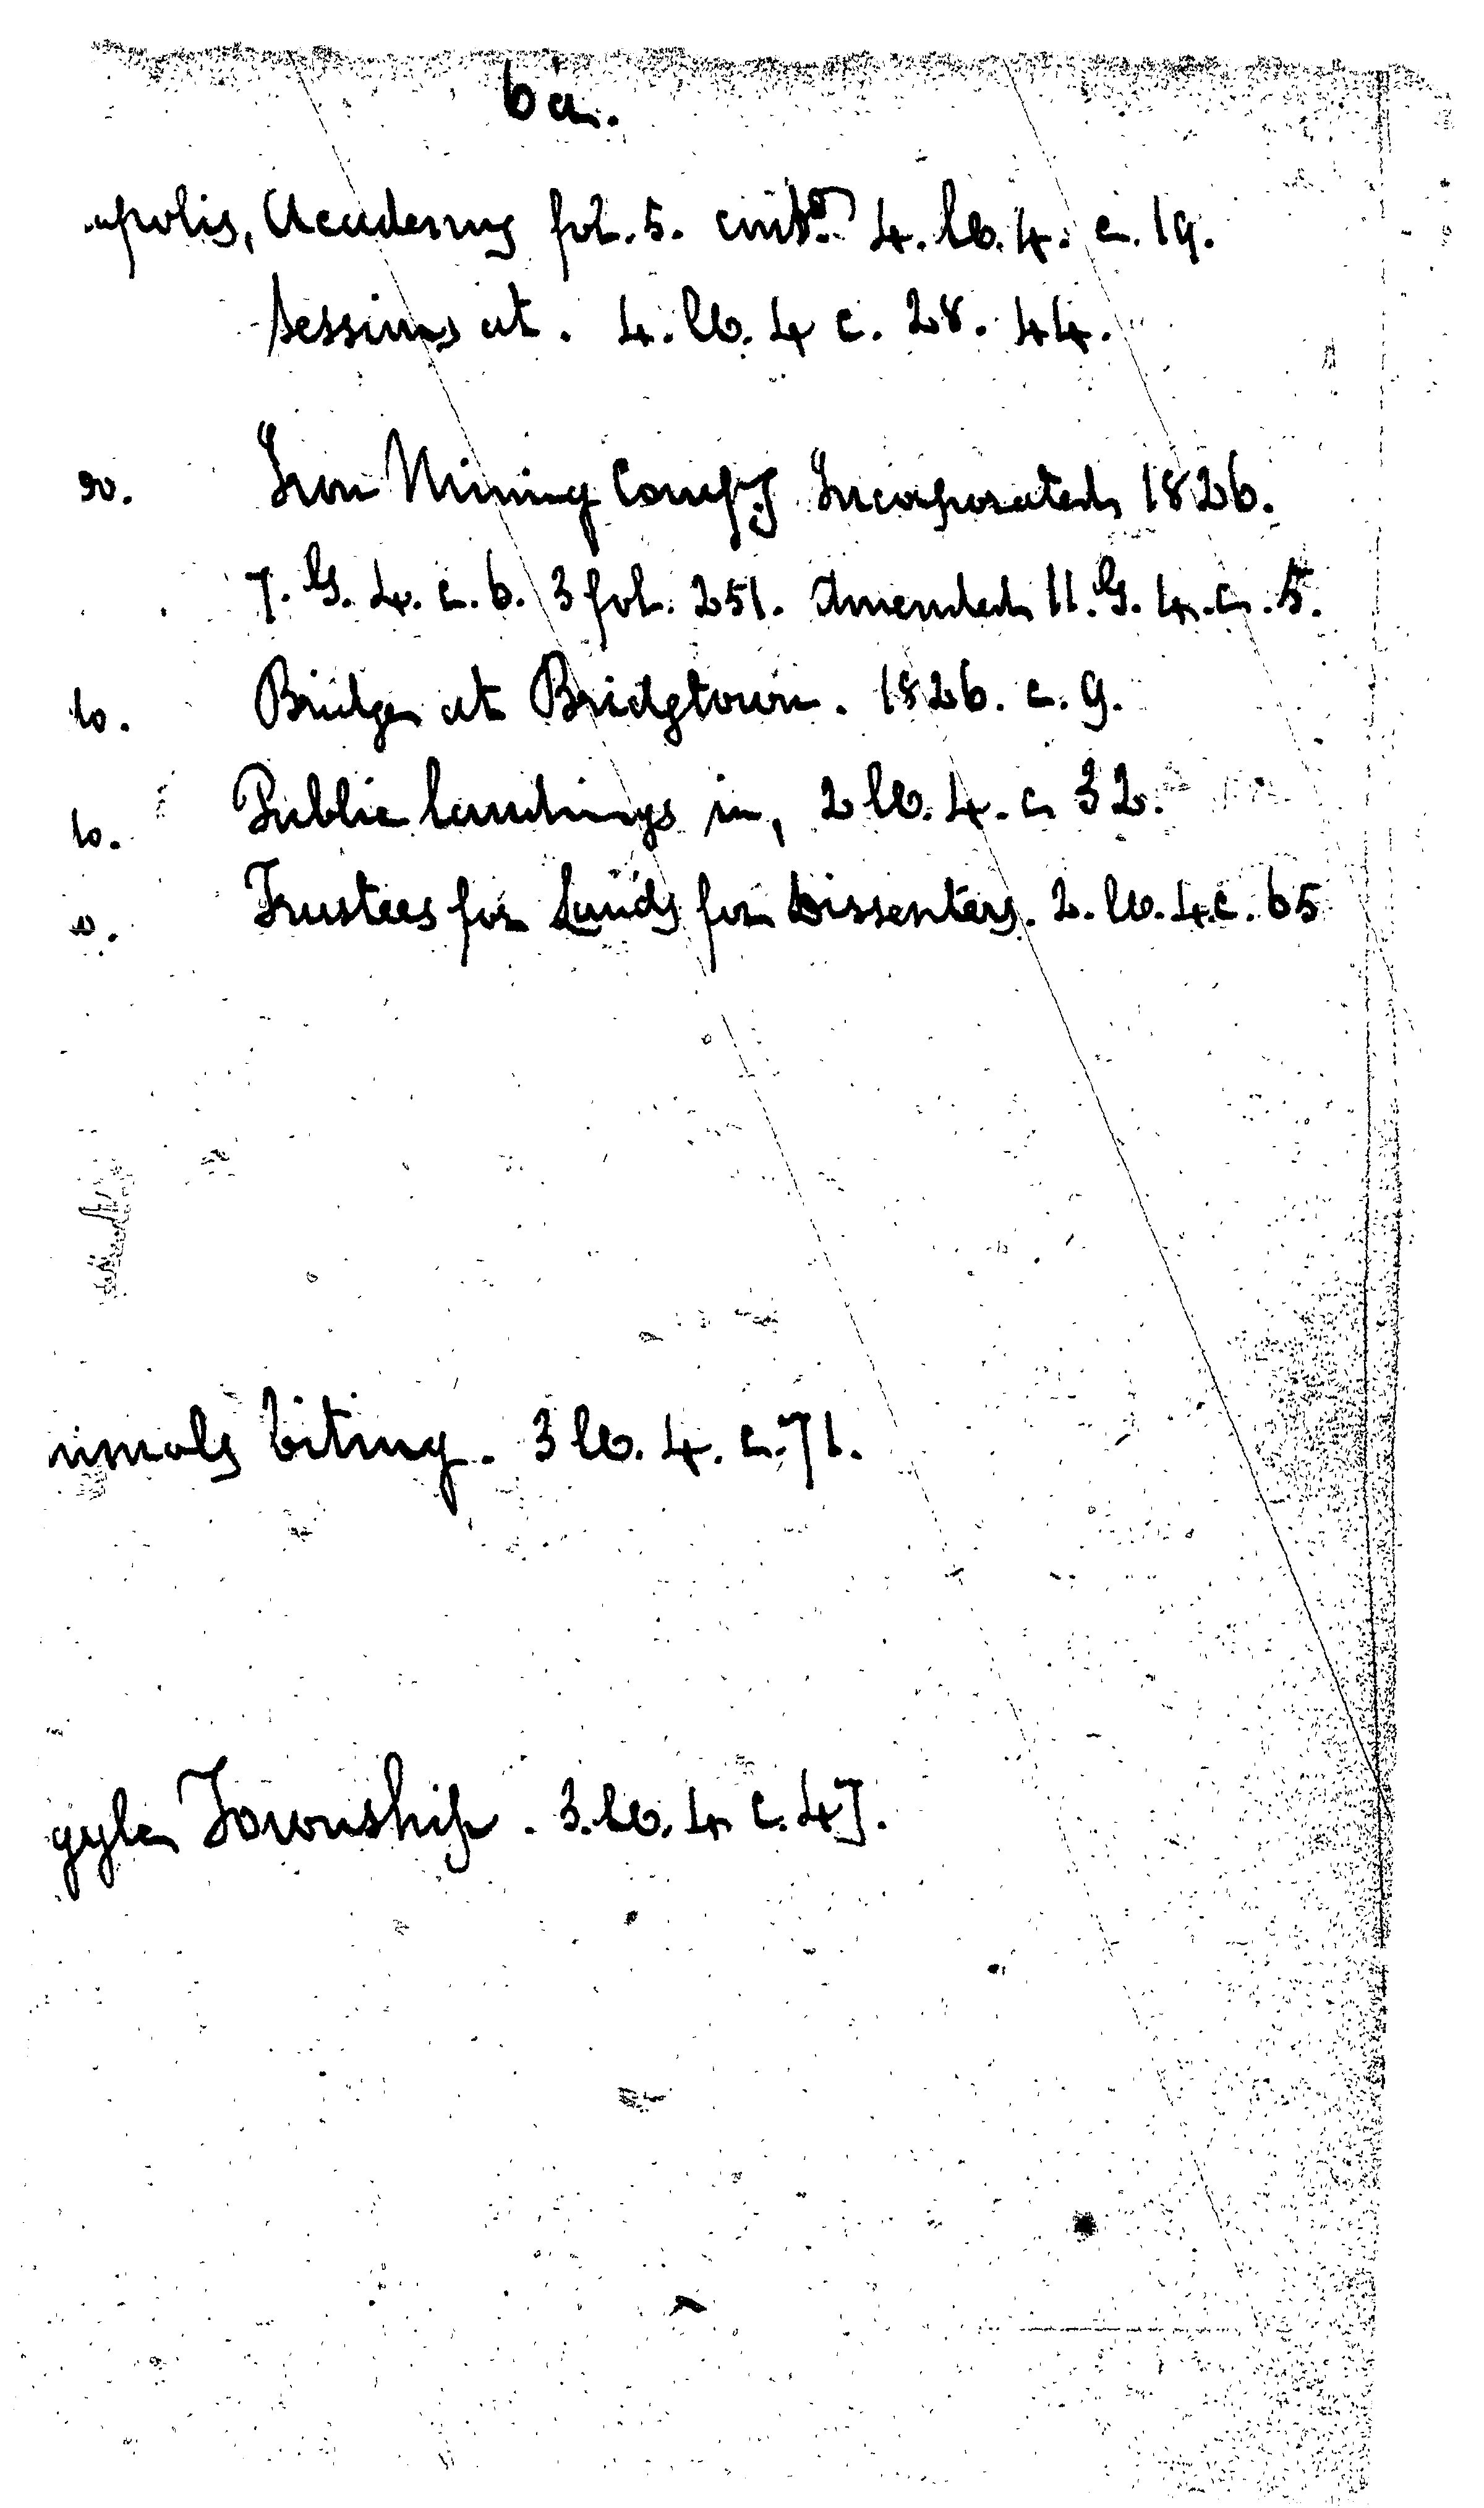 6a.
apolis, Academy fol. 5. contd. 4. W. 4. c. 19.
Sessions at. 4. W. 4 c. 28. 44.
Do. Iron Mining Compy Incorporated 1826.
7. G. 4. c. 6. 3 fol. 251. Amended 11. G. 4. c. 5.
Do. Bridge at Bridgtown. 1826. c. 9.
Do. Public landings in, 2 W. 4. c 32.
Do. Trustees for Lands for Dissenters. 2. W. 4. c. 65
nimals biting. 3 W. 4. c. 71.
gyle Township. 3. W. 4 c. 47.